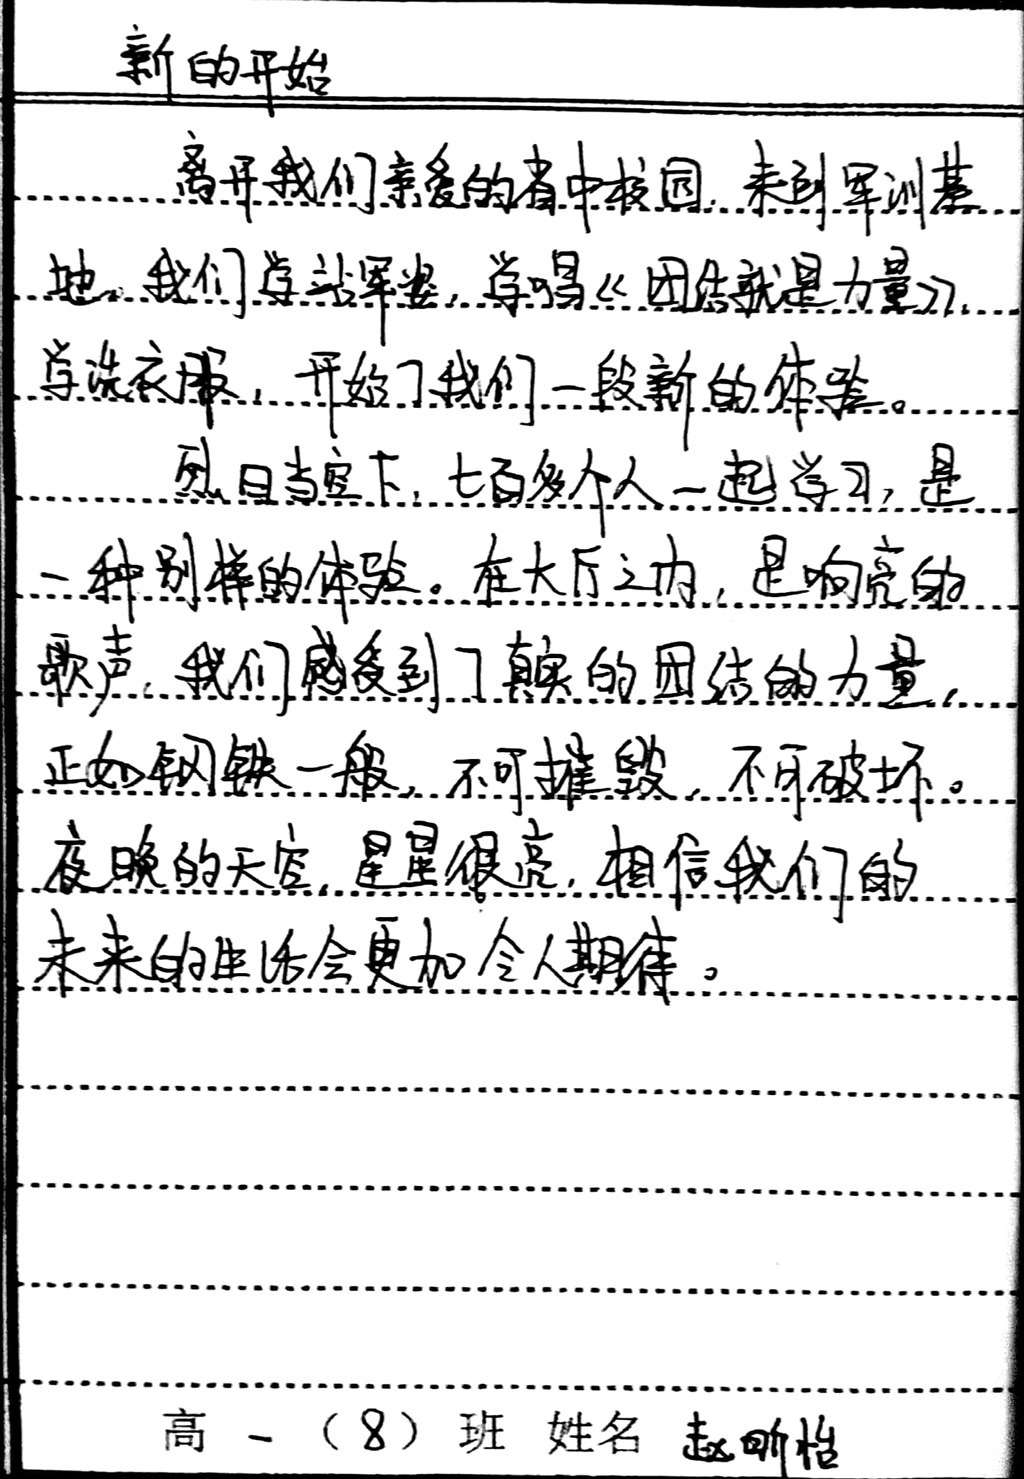 新的开始
离开我们亲爱的省中校园,来到军训基
地。我们学站军姿,学唱《团结就是力量》,
学洗衣服,开始了我们一段新的体验。
烈日当空下,七百多个人一起学习,是
一种别样的体验。在大厅之内,是响亮的
歌声,我们感受到了真实的团结的力量,
正如钢铁一般,不可摧毁,不可破坏。
夜晚的天空,星星很亮,相信我们的
未来的生活会更加令人期待。
高一(8)班 姓名 赵昕怡